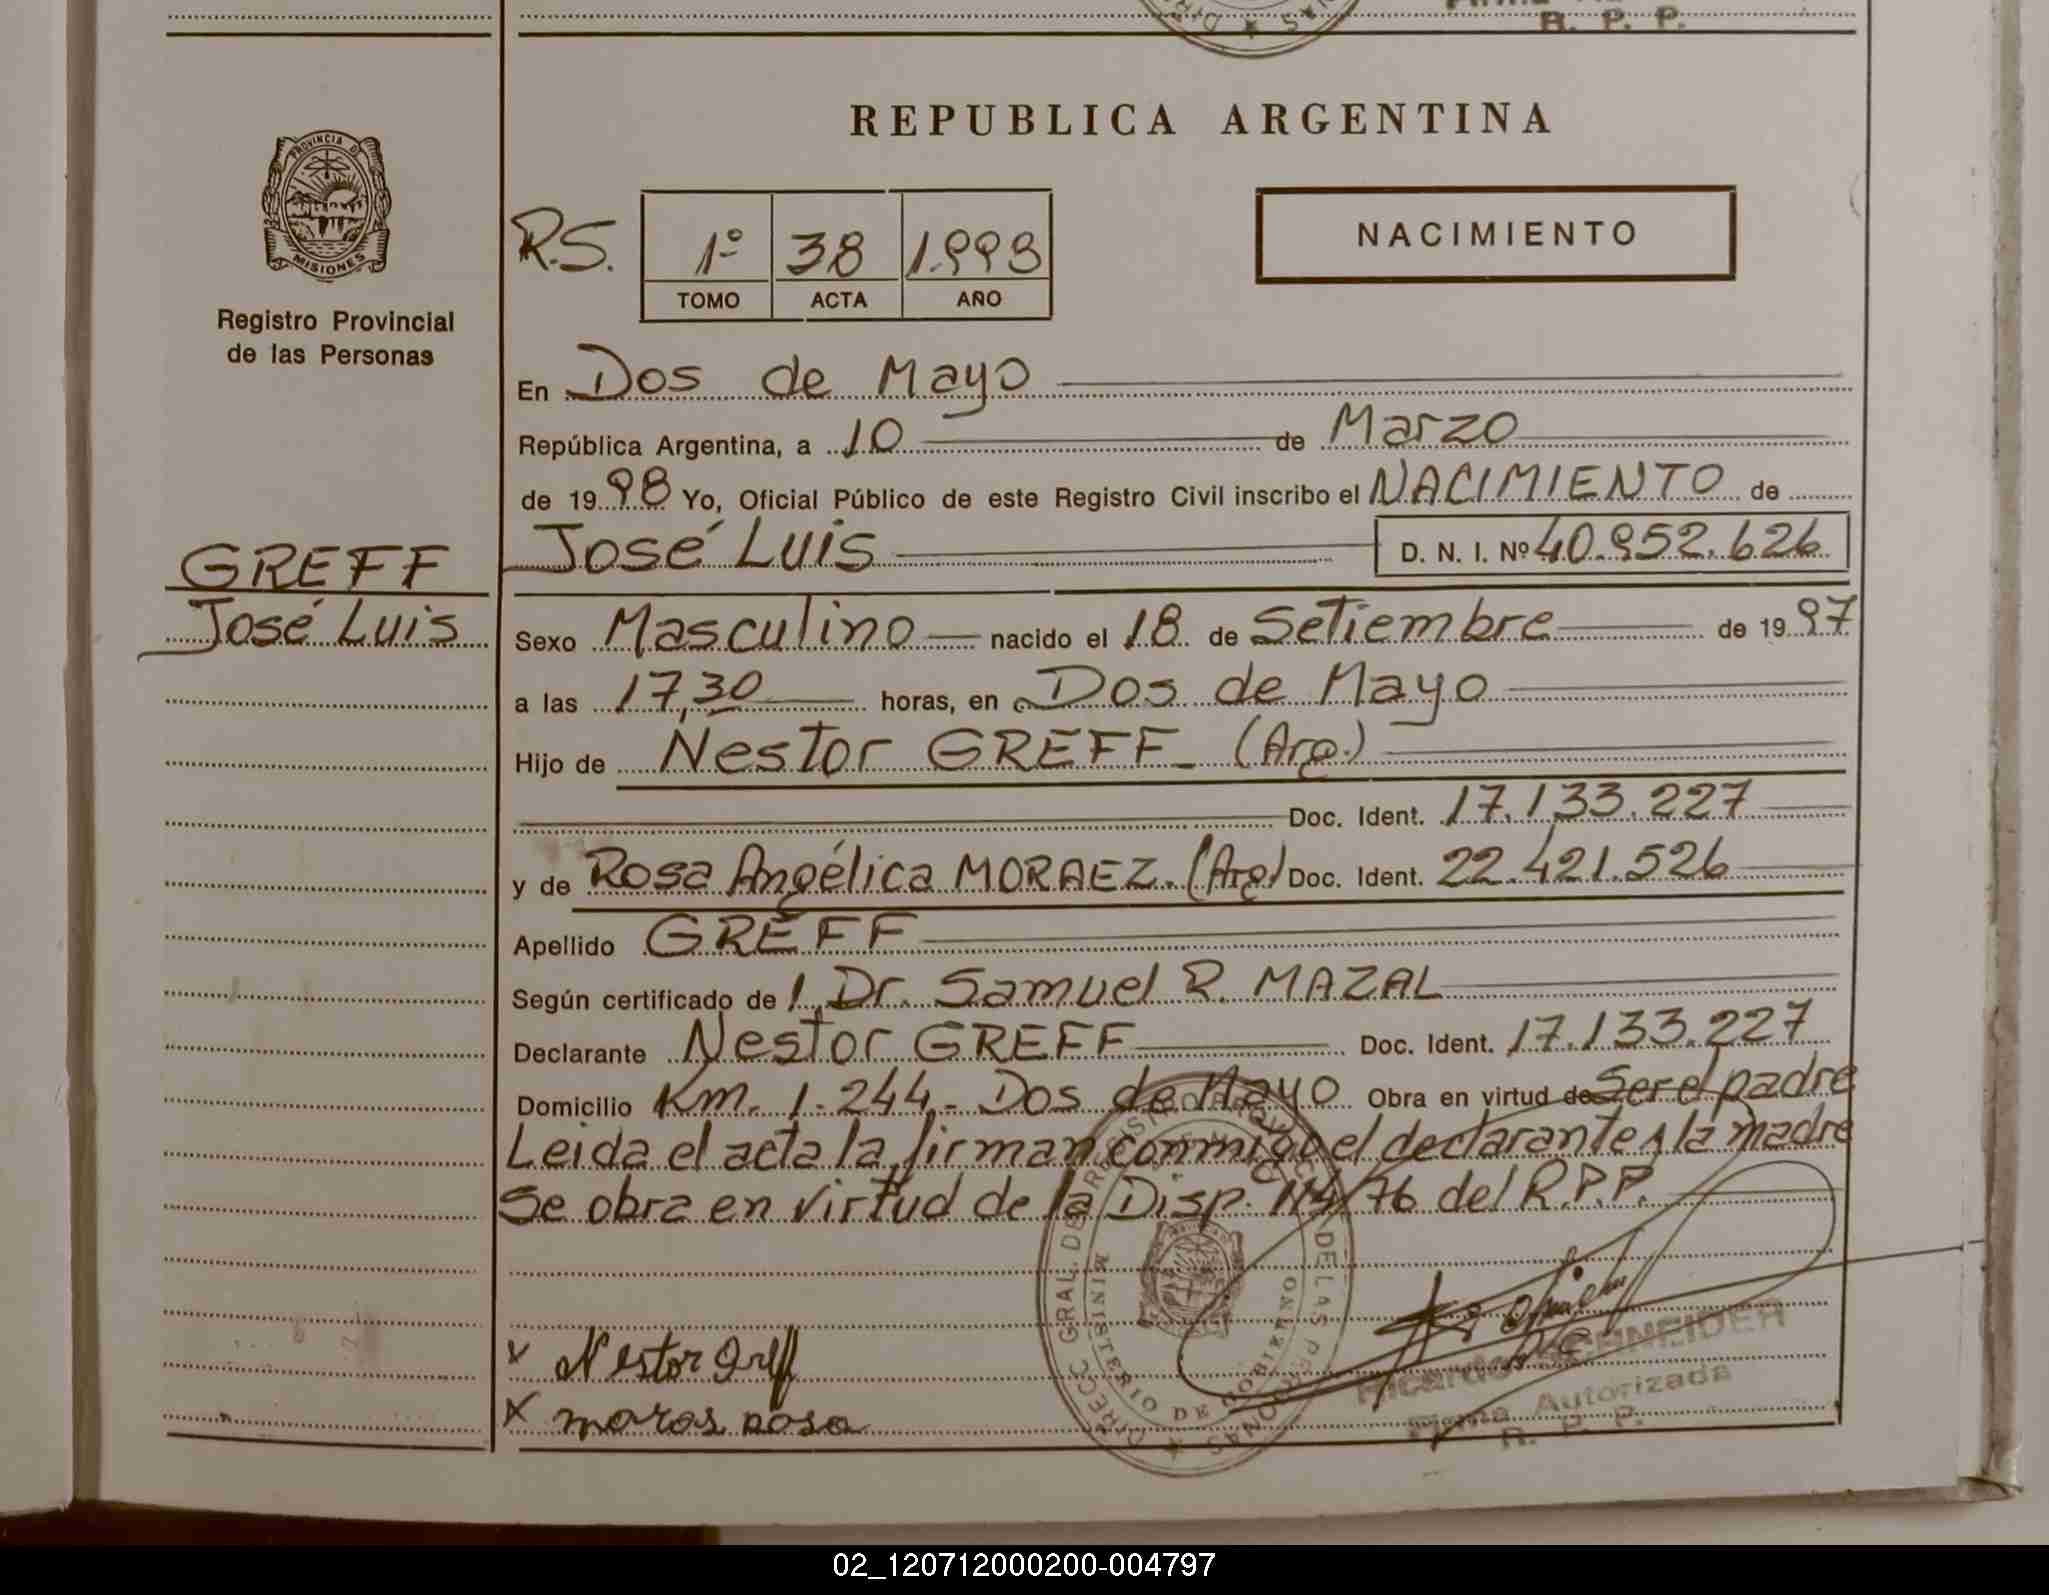 R. P. P.
REPUBLICA ARGENTINA
PROVINCIA DE MISIONES
Registro Provincial
de las Personas
R.S. 1º 38 1.998
TOMO ACTA AÑO
NACIMIENTO
En Dos de Mayo
República Argentina, a 10 de Marzo
de 1998 Yo, Oficial Público de este Registro Civil inscribo el NACIMIENTO de
José Luis D. N. I. Nº 40.952.626
GREFF
José Luis
Sexo Masculino nacido el 18 de Setiembre de 1997
a las 17,30 horas, en Dos de Mayo
Hijo de Nestor GREFF (Arg.)
Doc. Ident. 17.133.227
y de Rosa Angélica MORAEZ. (Arg) Doc. Ident. 22.421.526
Apellido GREFF
Según certificado de Dr. Samuel R. MAZAL
Declarante Nestor GREFF Doc. Ident. 17.133.227
Domicilio Km. 1.244 - Dos de Mayo Obra en virtud de Ser el padre
Leida el acta la firman conmigo el declarante y la madre
Se obra en virtud de la Disp. 114/76 del R.P.P.
DIRECC. GRAL. DEL REGISTRO DE LAS PERSONAS
MINISTERIO DE GOBIERNO
x Nestor Greff
x moras rosa
Ricardo SCHNEIDER
Firma Autorizada
R. P. P.
02_120712000200-004797